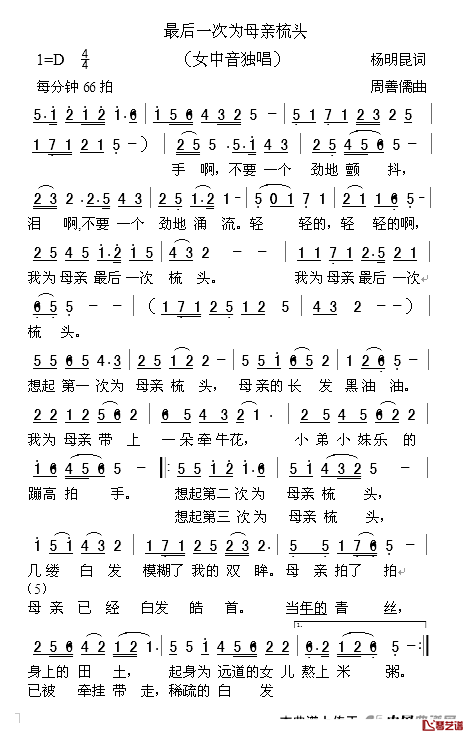 最后一次为母亲梳头
1=D 4/4 （女中音独唱） 杨明昆词
每分钟 66 拍 周善儒曲
5·1 2 1 2 1·6 | 1 5 6 4 3 2 5 - | 5 1 7 1 2 3 2 5
1 7 1 2 1 5 - ） | 2 5 5·5 1 3 | 2 5 4 5 6 5 -
手 啊，不要 一个 劲地 颤 抖，
2 3 2·2·5 4 3 | 2 5 1 2 1 - | 5 5 0 1 7 1 | 2 1 1 6 5 -
泪 啊,不要 一个 劲地 涌 流。轻 轻的，轻 轻的啊，
2 5 4 5 1·2 1 5 | 4 3 2 - - | 1 7 1 2·5 2 1
我为 母亲 最后 一次 梳 头。 我为 母亲 最后 一次
6 5 5 - - | （ 1 7 1 2 5 1 2 5 | 4 3 2 - - ）
梳 头。
5 5 6 6 5 4·3 | 2 5 1 2 2 - | 5 5 5 1 6 5 | 1 2 6 5 -
想起 第一 次为 母亲 梳 头， 母亲的 长 发 黑油 油。
2 2 1 2 1 2 5 6 | 6 4 5 3 2 1· | 2 5 4 5 6 2 2
我为 母亲 带 上 一朵 牵牛花， 小弟 小妹乐 的
1 6 4 5 6 5 - ‖: 5 5 1 2 1·6 | 5 1 4 3 2 5
蹦高 拍 手。 想起第二 次 为 母亲 梳 头，
想起第三 次 为 母亲 梳 头，
1 5 1 4 3 2 | 1 7 1 2 5 2 3 2 | 5 5 1 7 6 5
几缕 白 发 模糊了 我的 双 眸。母 亲 拍了 拍
（5）
母 亲 已 经 白发 皓 首。 当年的 青 丝，
2 5 6 6 4 1 2 1· | 5 5 1 5 2 5 | 6·6 1 2 6 5 - :‖
1.
身上的 田 土， 起身为 远道的女 儿 熬上 米 粥。
已被 牵挂 带 走，稀疏的 白 发
飞琴艺谱